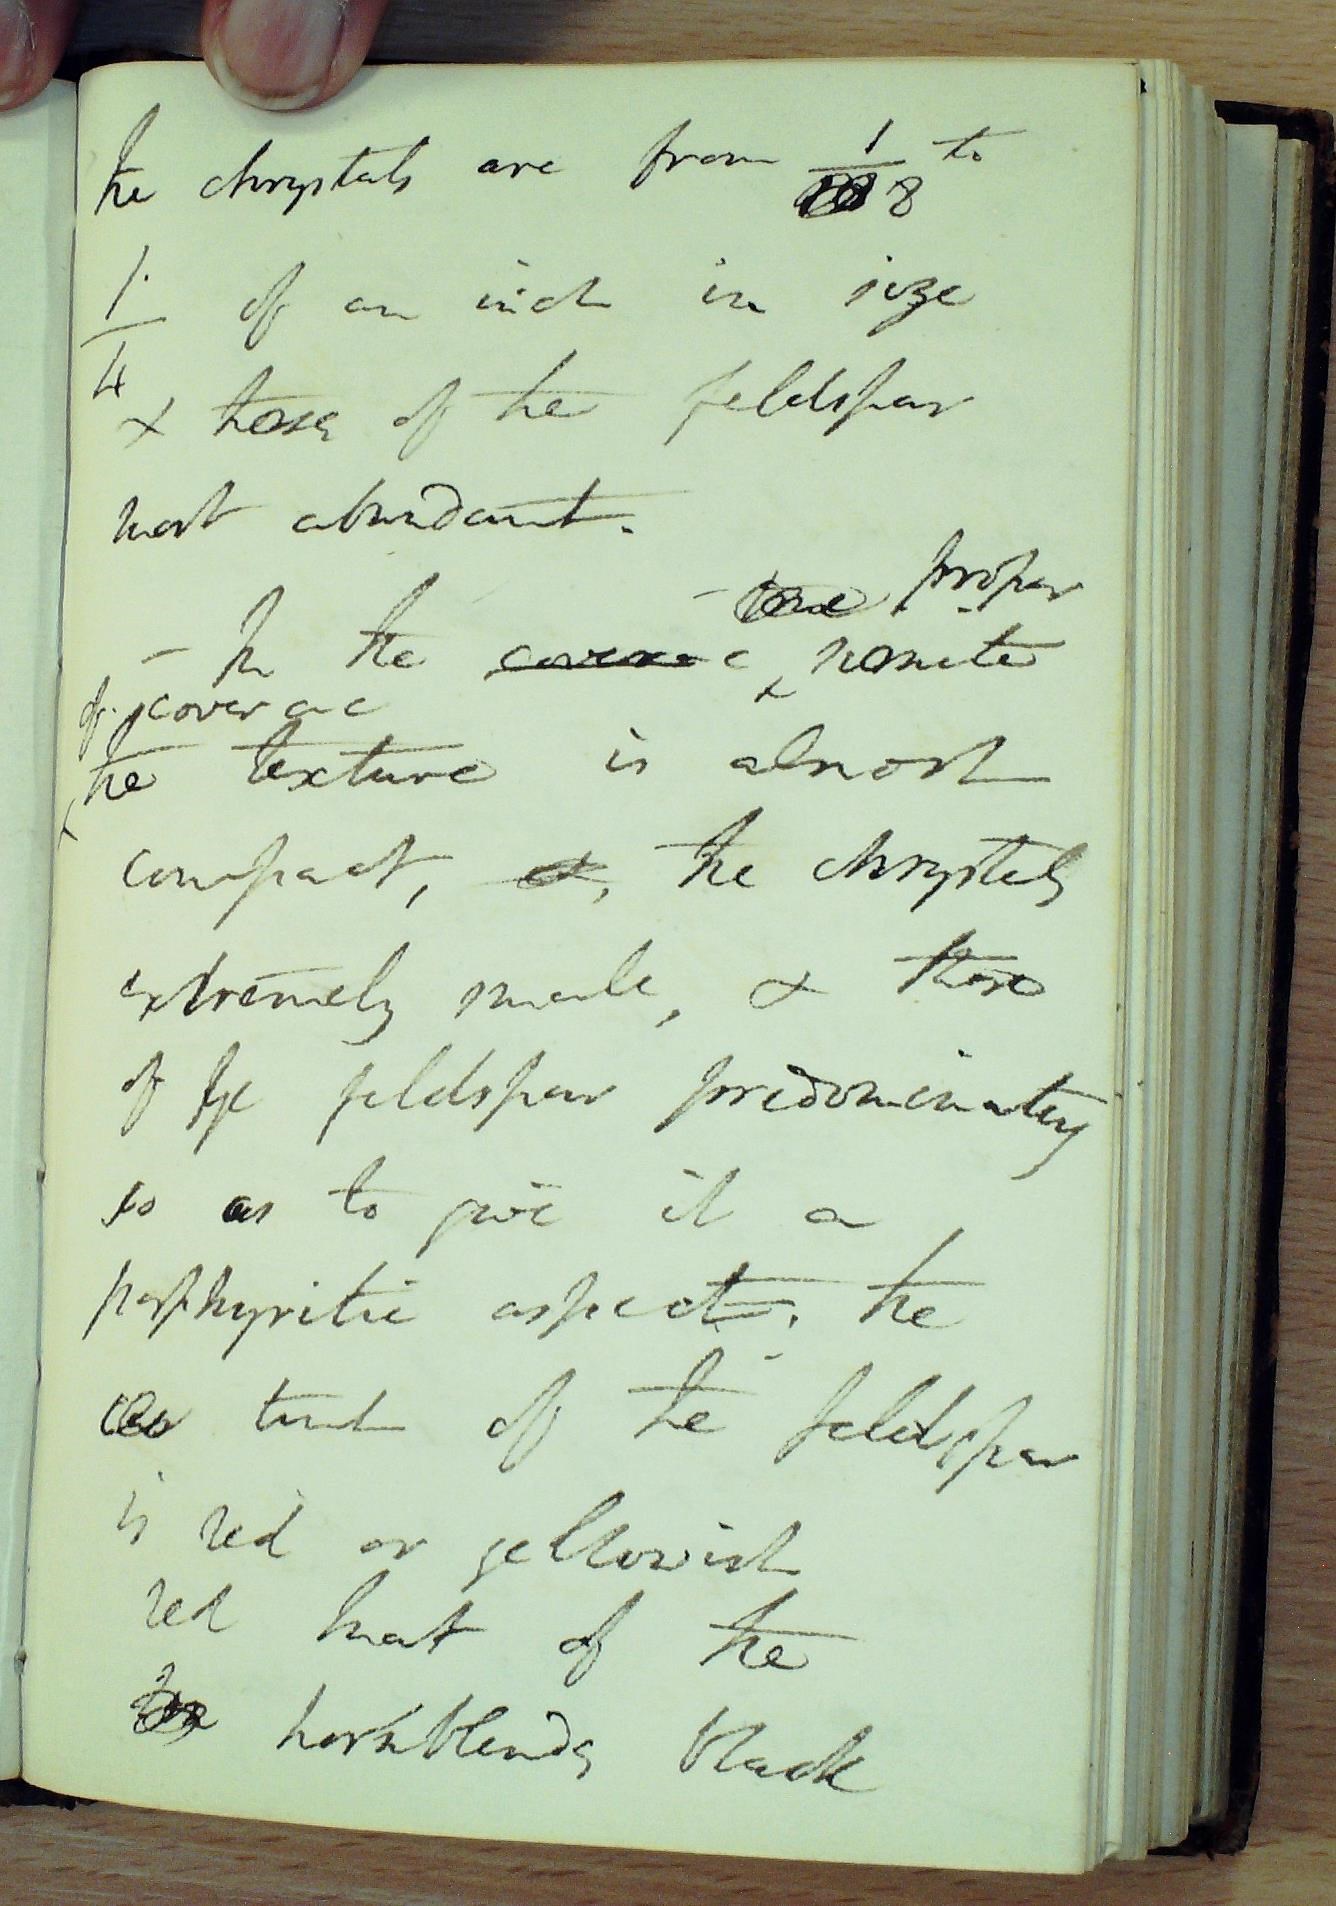 the chrystals are from 1/8 to
1/4 of an inch in size
& those of the feldspar
most abundant.
- proper
- In the coverac
of coverac
the texture is almost
compact, &, the chrystals
extremely small, & those
of ye feldspar predominating
so as to give it a
porphyritic aspect. the
tint of the feldspar
is red or yellowish
red that of the
hornblende black